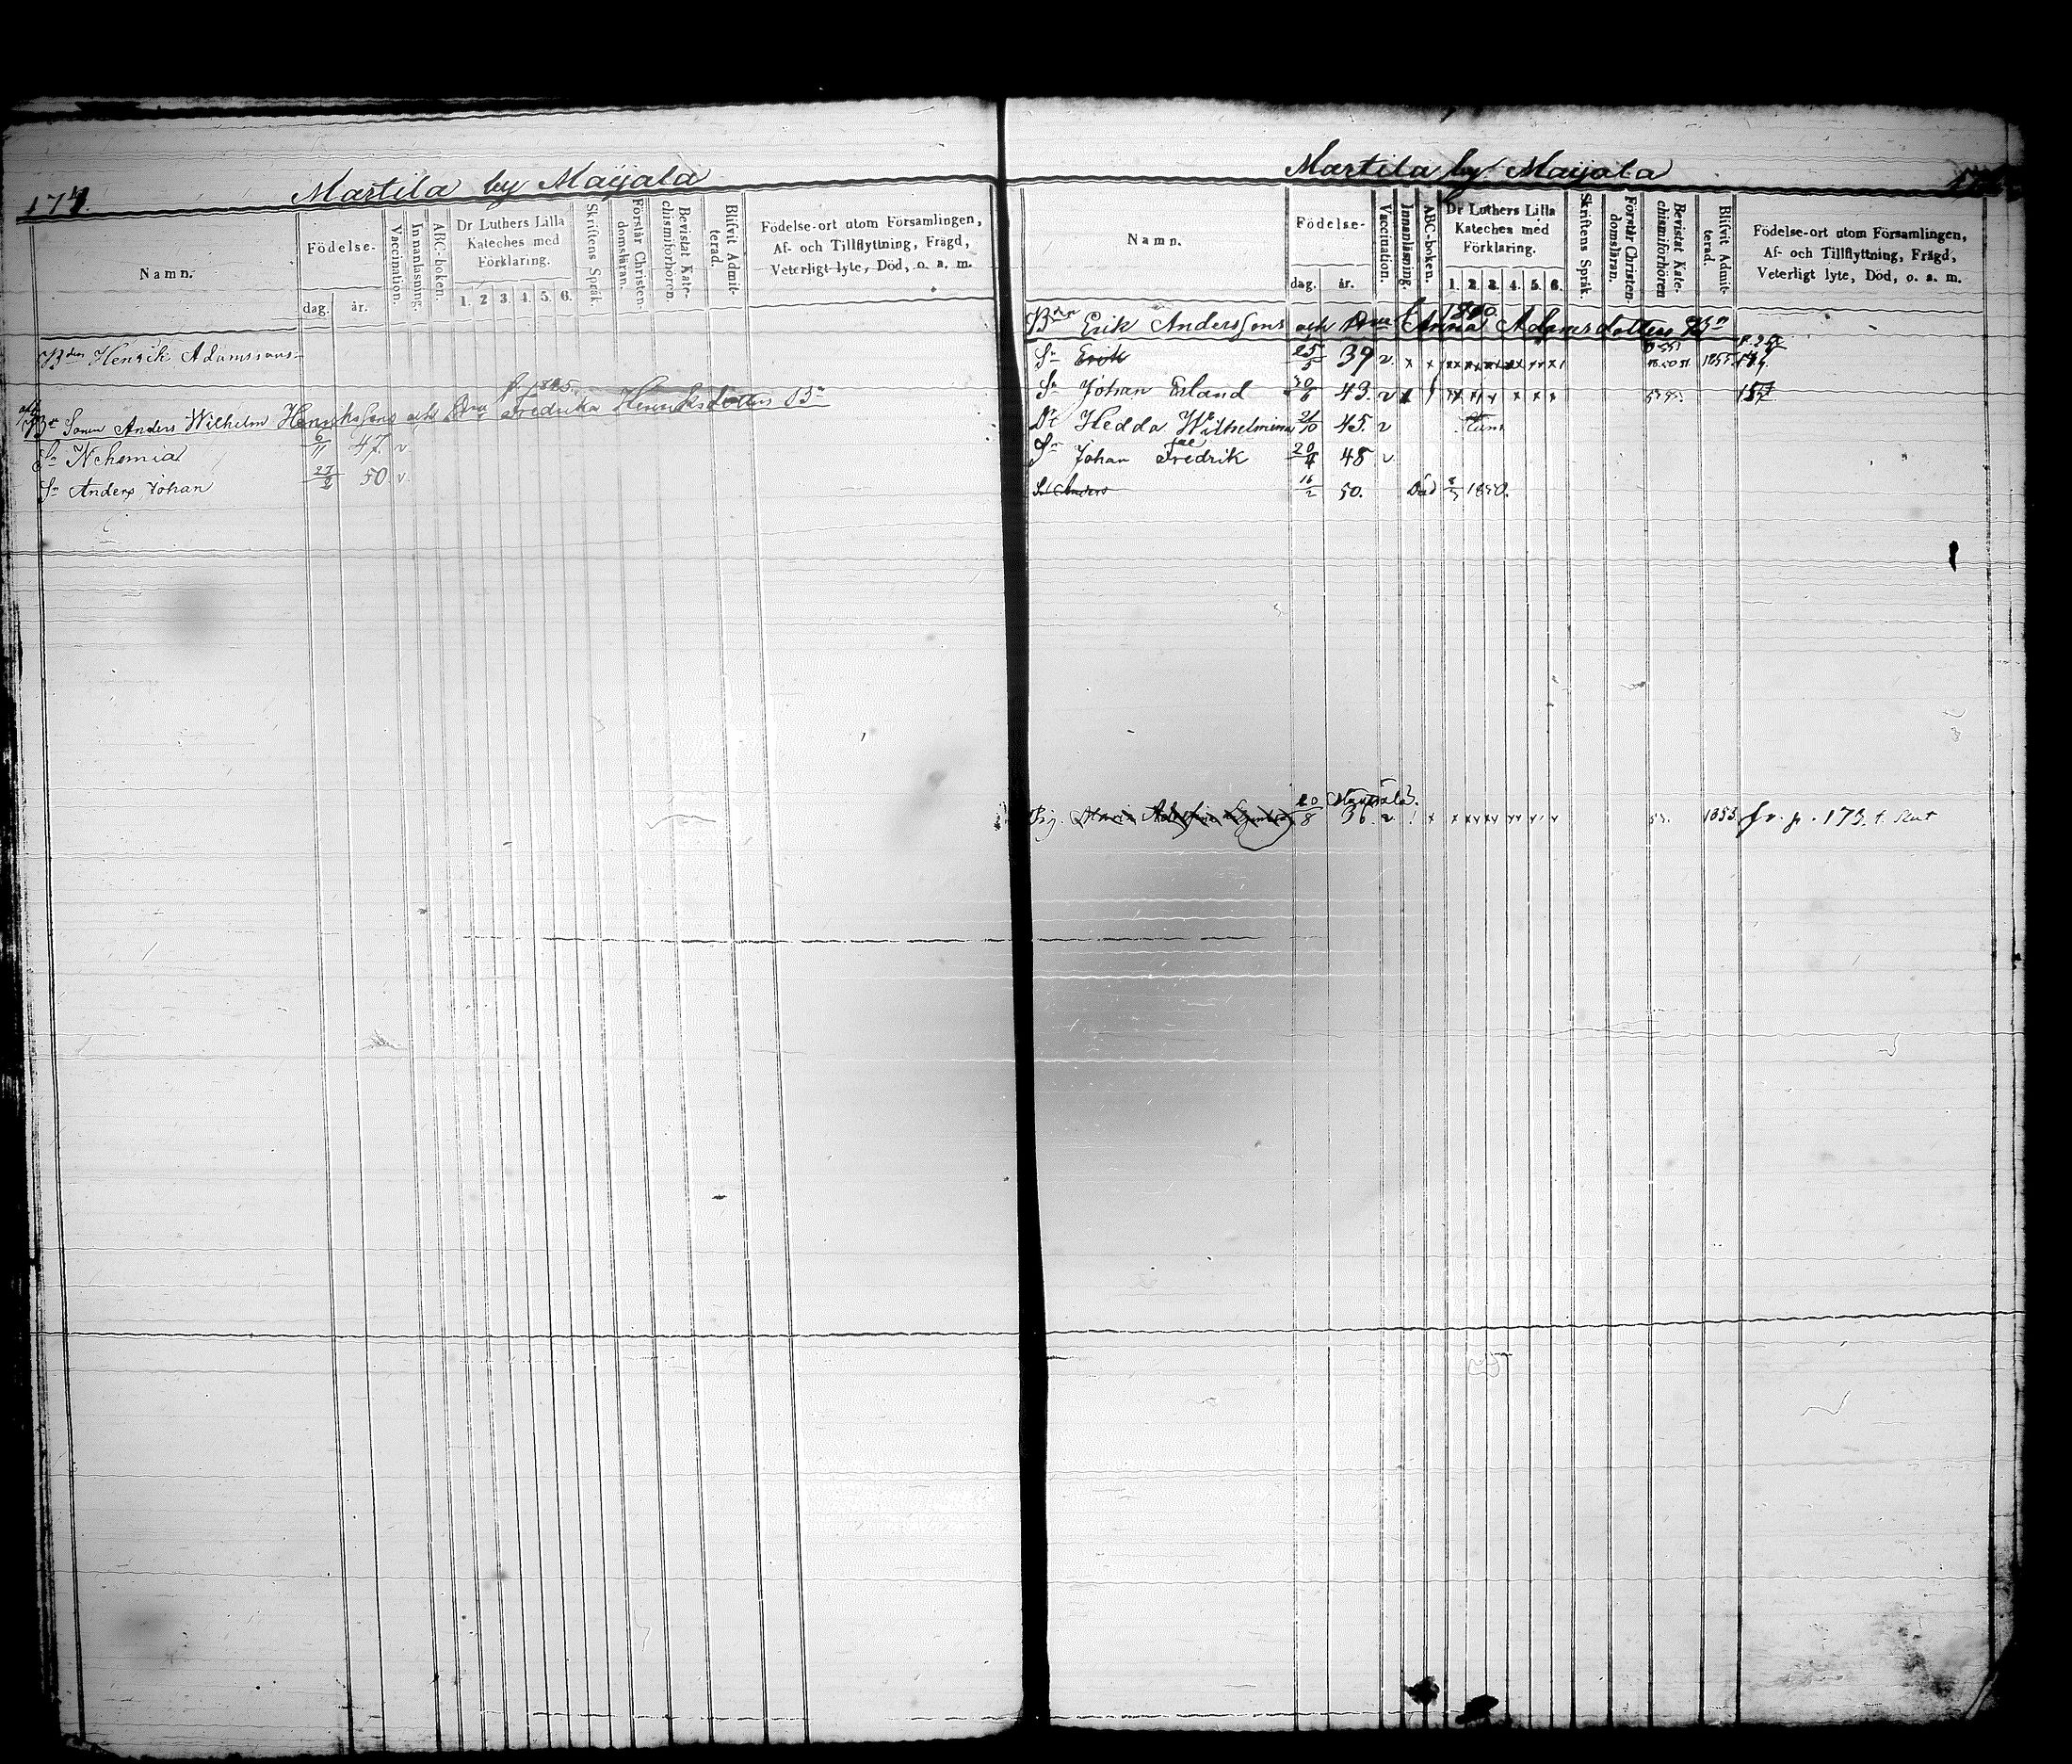 174.
Martila by Maijala
Namn.
Födelse-
dag. år.
Vaccination.
Innanläsning.
ABC-boken.
Dr Luthers Lilla
Kateches med
Förklaring.
1. 2 3. 4. 5. 6.
Skriftens Språk.
Förstår Christen-
domsläran.
Bevistat Kate-
chismiförhören.
Blifvit Admit-
terad.
Födelse-ort utom Församlingen,
Af- och Tillflyttning, Frägd,
Veterligt lyte, Död, o. a. m.
Bden Henrik Adamssons
f. 1825.
Sonen Anders Wilhelm Henrikssons och Fredrika Henriksdotters Bn
Sn Nehemia 6/11 47. v.
Sn Anders Johan 27/2 50 v.
Martila by Maijala
Namn.
Födelse-
dag. år.
Vaccination.
Innanläsning.
ABC-boken.
Dr Luthers Lilla
Kateches med
Förklaring.
1. 2. 3. 4. 5. 6.
Skriftens Språk.
Förstår Christen-
domsläran.
Bevistat Kate-
chismiförhören
Blifvit Admit-
terad.
Födelse-ort utom Församlingen,
Af- och Tillflyttning, Frägd,
Veterligt lyte, Död, o. a. m.
Erik Anderssons och Anna Adamsdotters Bn
Sn Erik 25/5 39 v. x x 1855
Sn Johan Erland 43. v
Dr Hedda Wilhelmina 45. v
Sn Johan Fredrik 48 v
Sn Anders 16/2 50. Död 1850.
Pig. Maria 36. v. 1853 fr. p. 173.